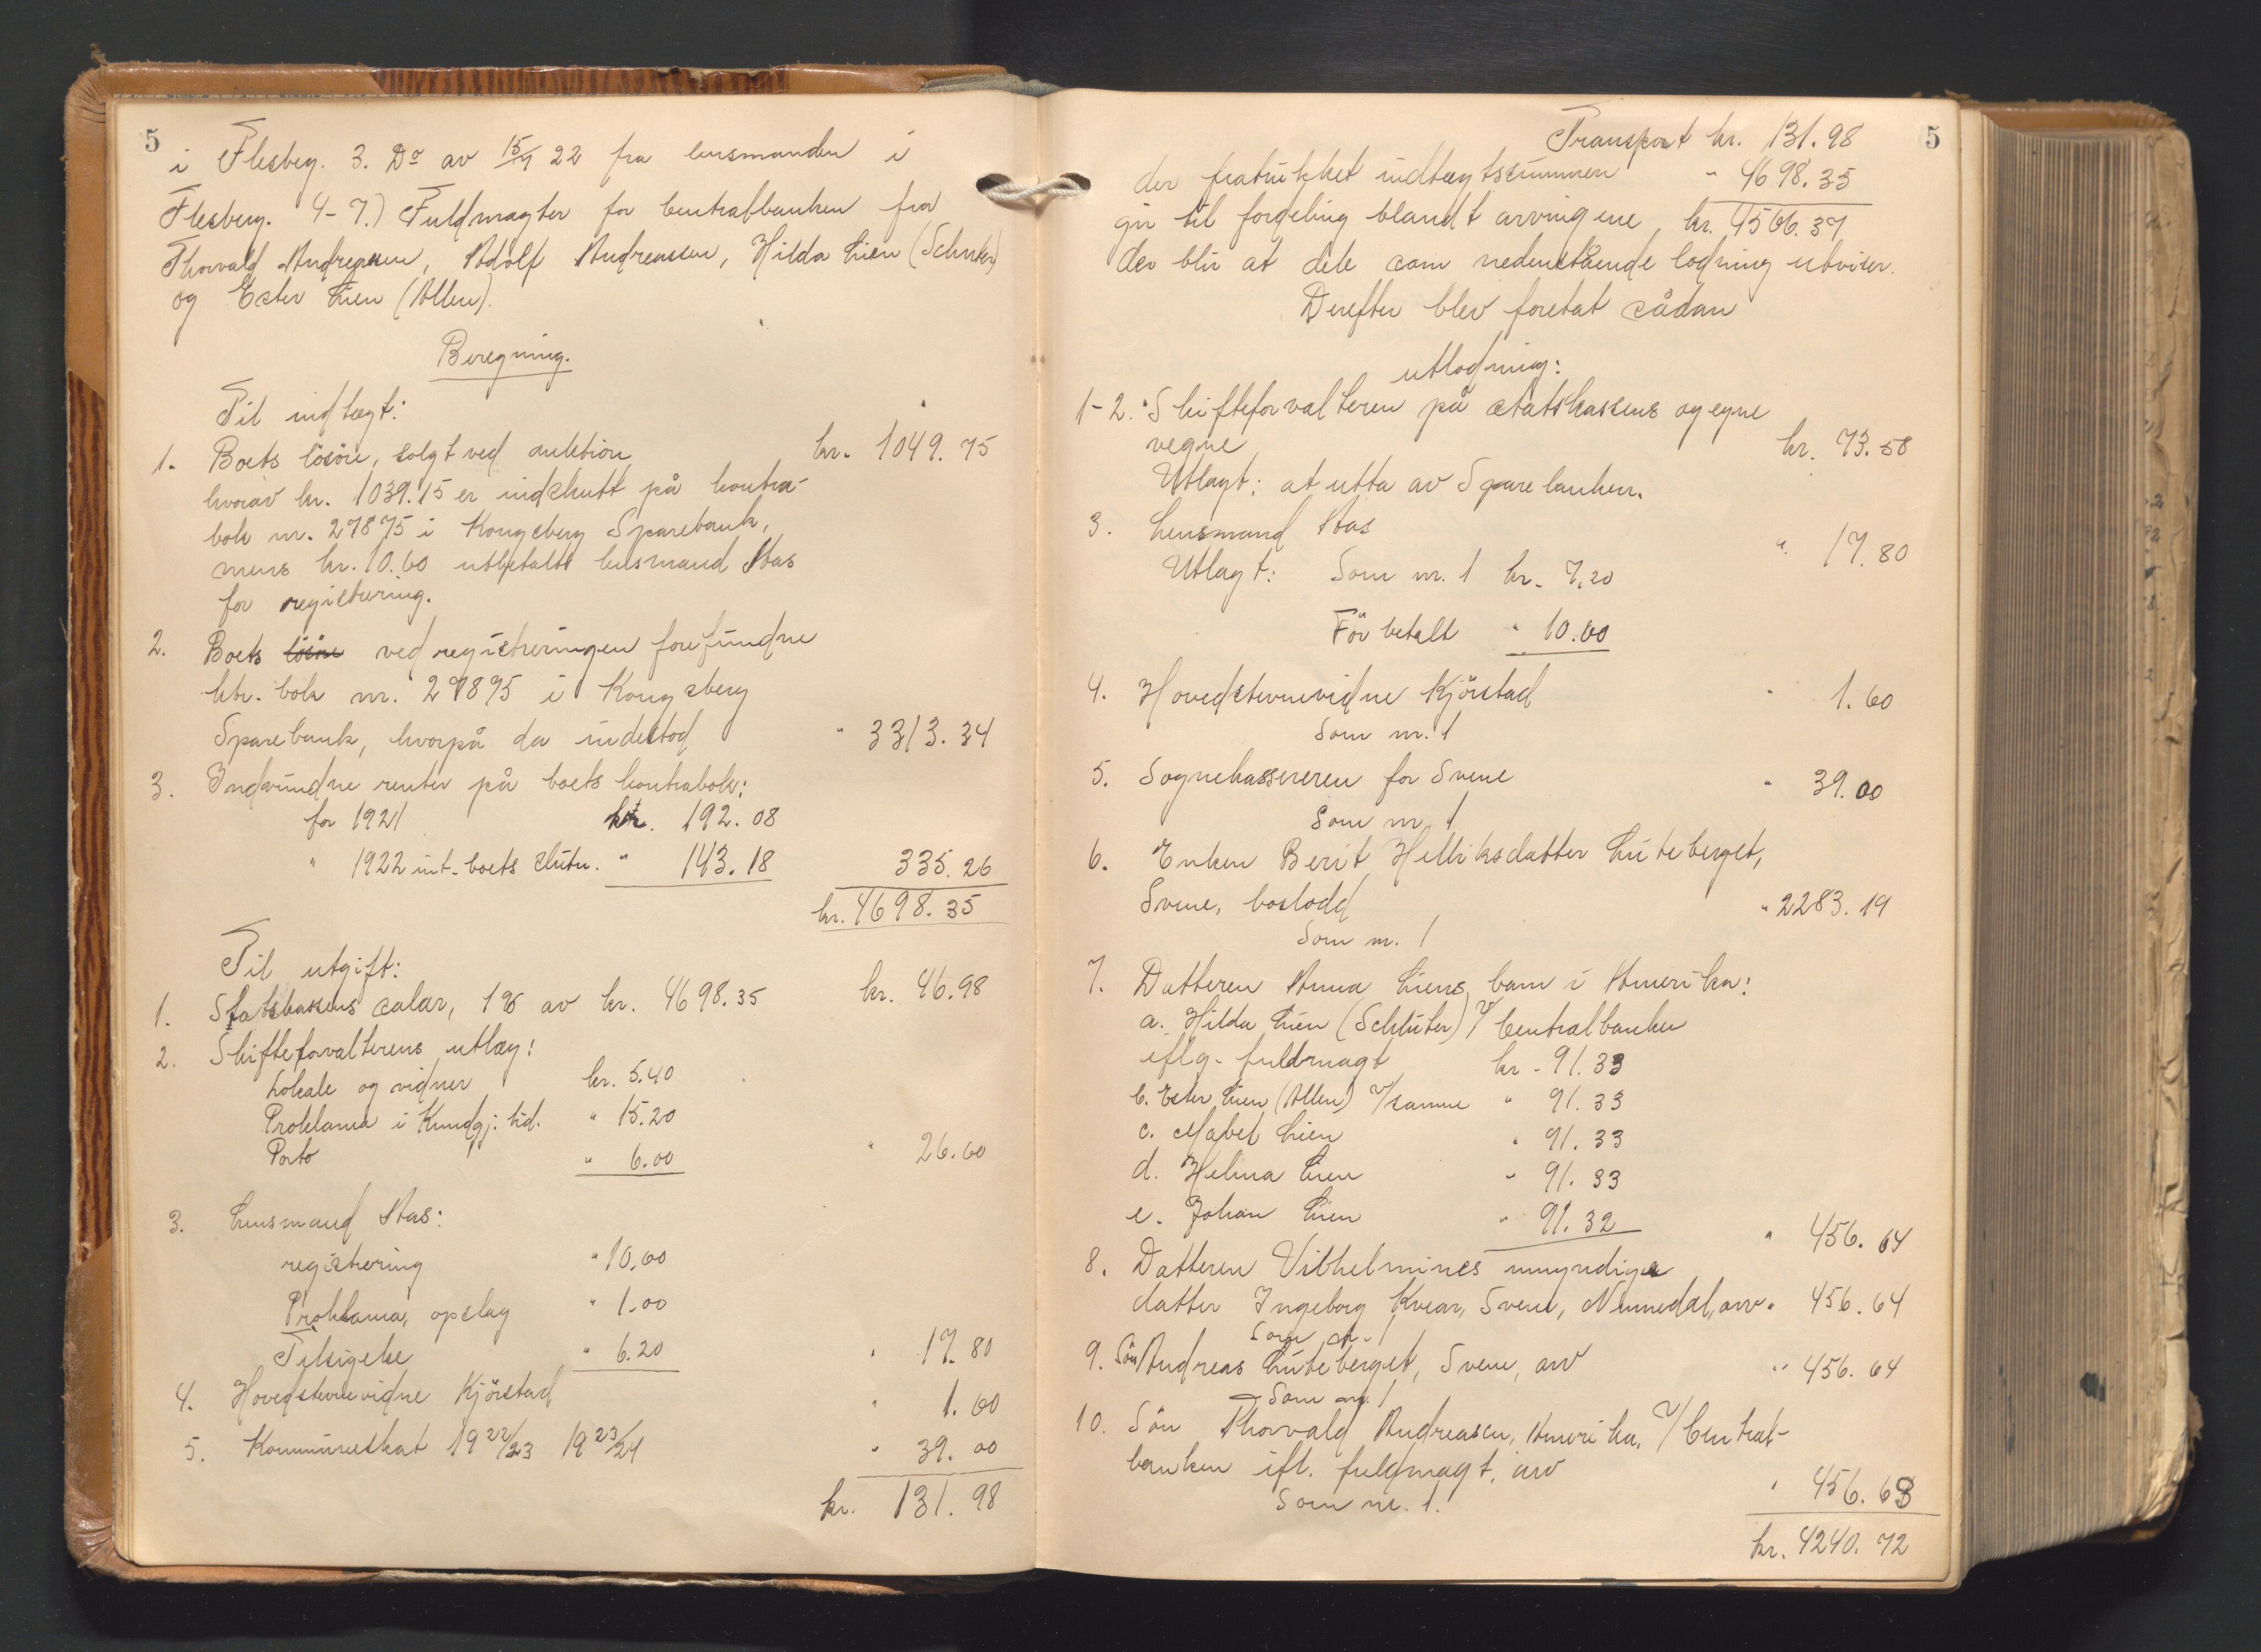 5
i Flesberg. 3. Do av 15/9 22 fra lensmanden i
Flesberg. 4-7.) Fuldmagter for Centralbanken fra
Thorvald Andreasen, Adolf Andreassen, Hilda Lien (Schuter)
og Ester Lien (Allen).
Beregning.
Til indtægt:
1. Boets lösöre, solgt ved auktion kr. 1049.75
hvorav kr. 1039.15 er indskutt på kontra-
bok nr. 27875 i Kongsberg Sparebank,
mens kr. 10.60 utbetalt lensmand Aas
for registrering.
2. Boets lösöre ved registreringen forefundne
ktr. bok nr. 27875 i Kongsberg
Sparebank, hvorpå da indestod " 3313.34
3. Indvundne renter på boets kontrabok:
for 1921 kr. 192.08
" 1922 int. boets slutn. " 143.18 335.26
kr. 4698.35
Til utgift:
1. Statskassens salar, 1% av kr. 4698.35 kr. 46.98
2. Skifteforvalterens utlæg:
Lokale og vidner kr. 5.40
Proklama i Kundgj. tid. " 15.20
Porto " 6.00 " 26.60
3. Lensmand Aas:
registrering " 10.60
Proklama, opslag " 1.00
Tilsigelse " 6.20 " 17.80
4. Hovedstevnevidne Kjörstad " 1.60
5. Kommuneskat 1922/23 1923/24 " 39.00
kr. 131.98
5
Transport kr. 131.98
der fratrukket indtægtssummen " 4698.35
gir til fordeling blandt arvingene kr. 4566.37
der blir at dele som nedenstående lodning utviser.
Derefter blev foretat sådan
utlodning:
1-2. Skifteforvalteren på statskassens og egne
vegne kr. 73.58
Utlagt: at utta av Sparebanken.
3. Lensmand Aas " 17.80
Utlagt: Som nr. 1 kr. 7.20
För betalt " 10.60
4. Hovedstevnevidne Kjörstad " 1.60
Som nr. 1
5. Sognekassereren for Svene " 39.00
Som nr. 1
6. Enken Berit Helliksdatter Luteberget,
Svene, boslodd " 2283.19
Som nr. 1
7. Datteren Anna Liens barn i Amerika:
a. Hilda Lien (Schluter) v/ Centralbanken
iflg. fuldmagt kr. 91.33
b. Ester Lien (Allen) v/ samme " 91.33
c. Mabel Lien " 91.33
d. Helma Lien " 91.33
e. Johan Lien " 91.32 " 456.64
8. Datteren Vilhelmines umyndige
datter Ingeborg Kvear, Svene, Numedal, arv " 456.64
Som nr. 1
9. Sön Andreas Luteberget, Svene, arv " 456.64
Som nr. 1
10. Sön Thorvald Andreasen, Amerika, v/ Central-
banken ifl. fuldmagt, arv " 456.63
Som nr. 1.
kr. 4240.72